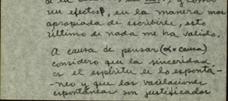 un efectos, en la manera mas
apropiada de escribirle, esto
último de nada me ha valido.
A causa de pensar (x causa)
considero que la sinceridad
es el espíritu e lo espontá-
-neo y que las vacilaciones
espontáneas son justificados